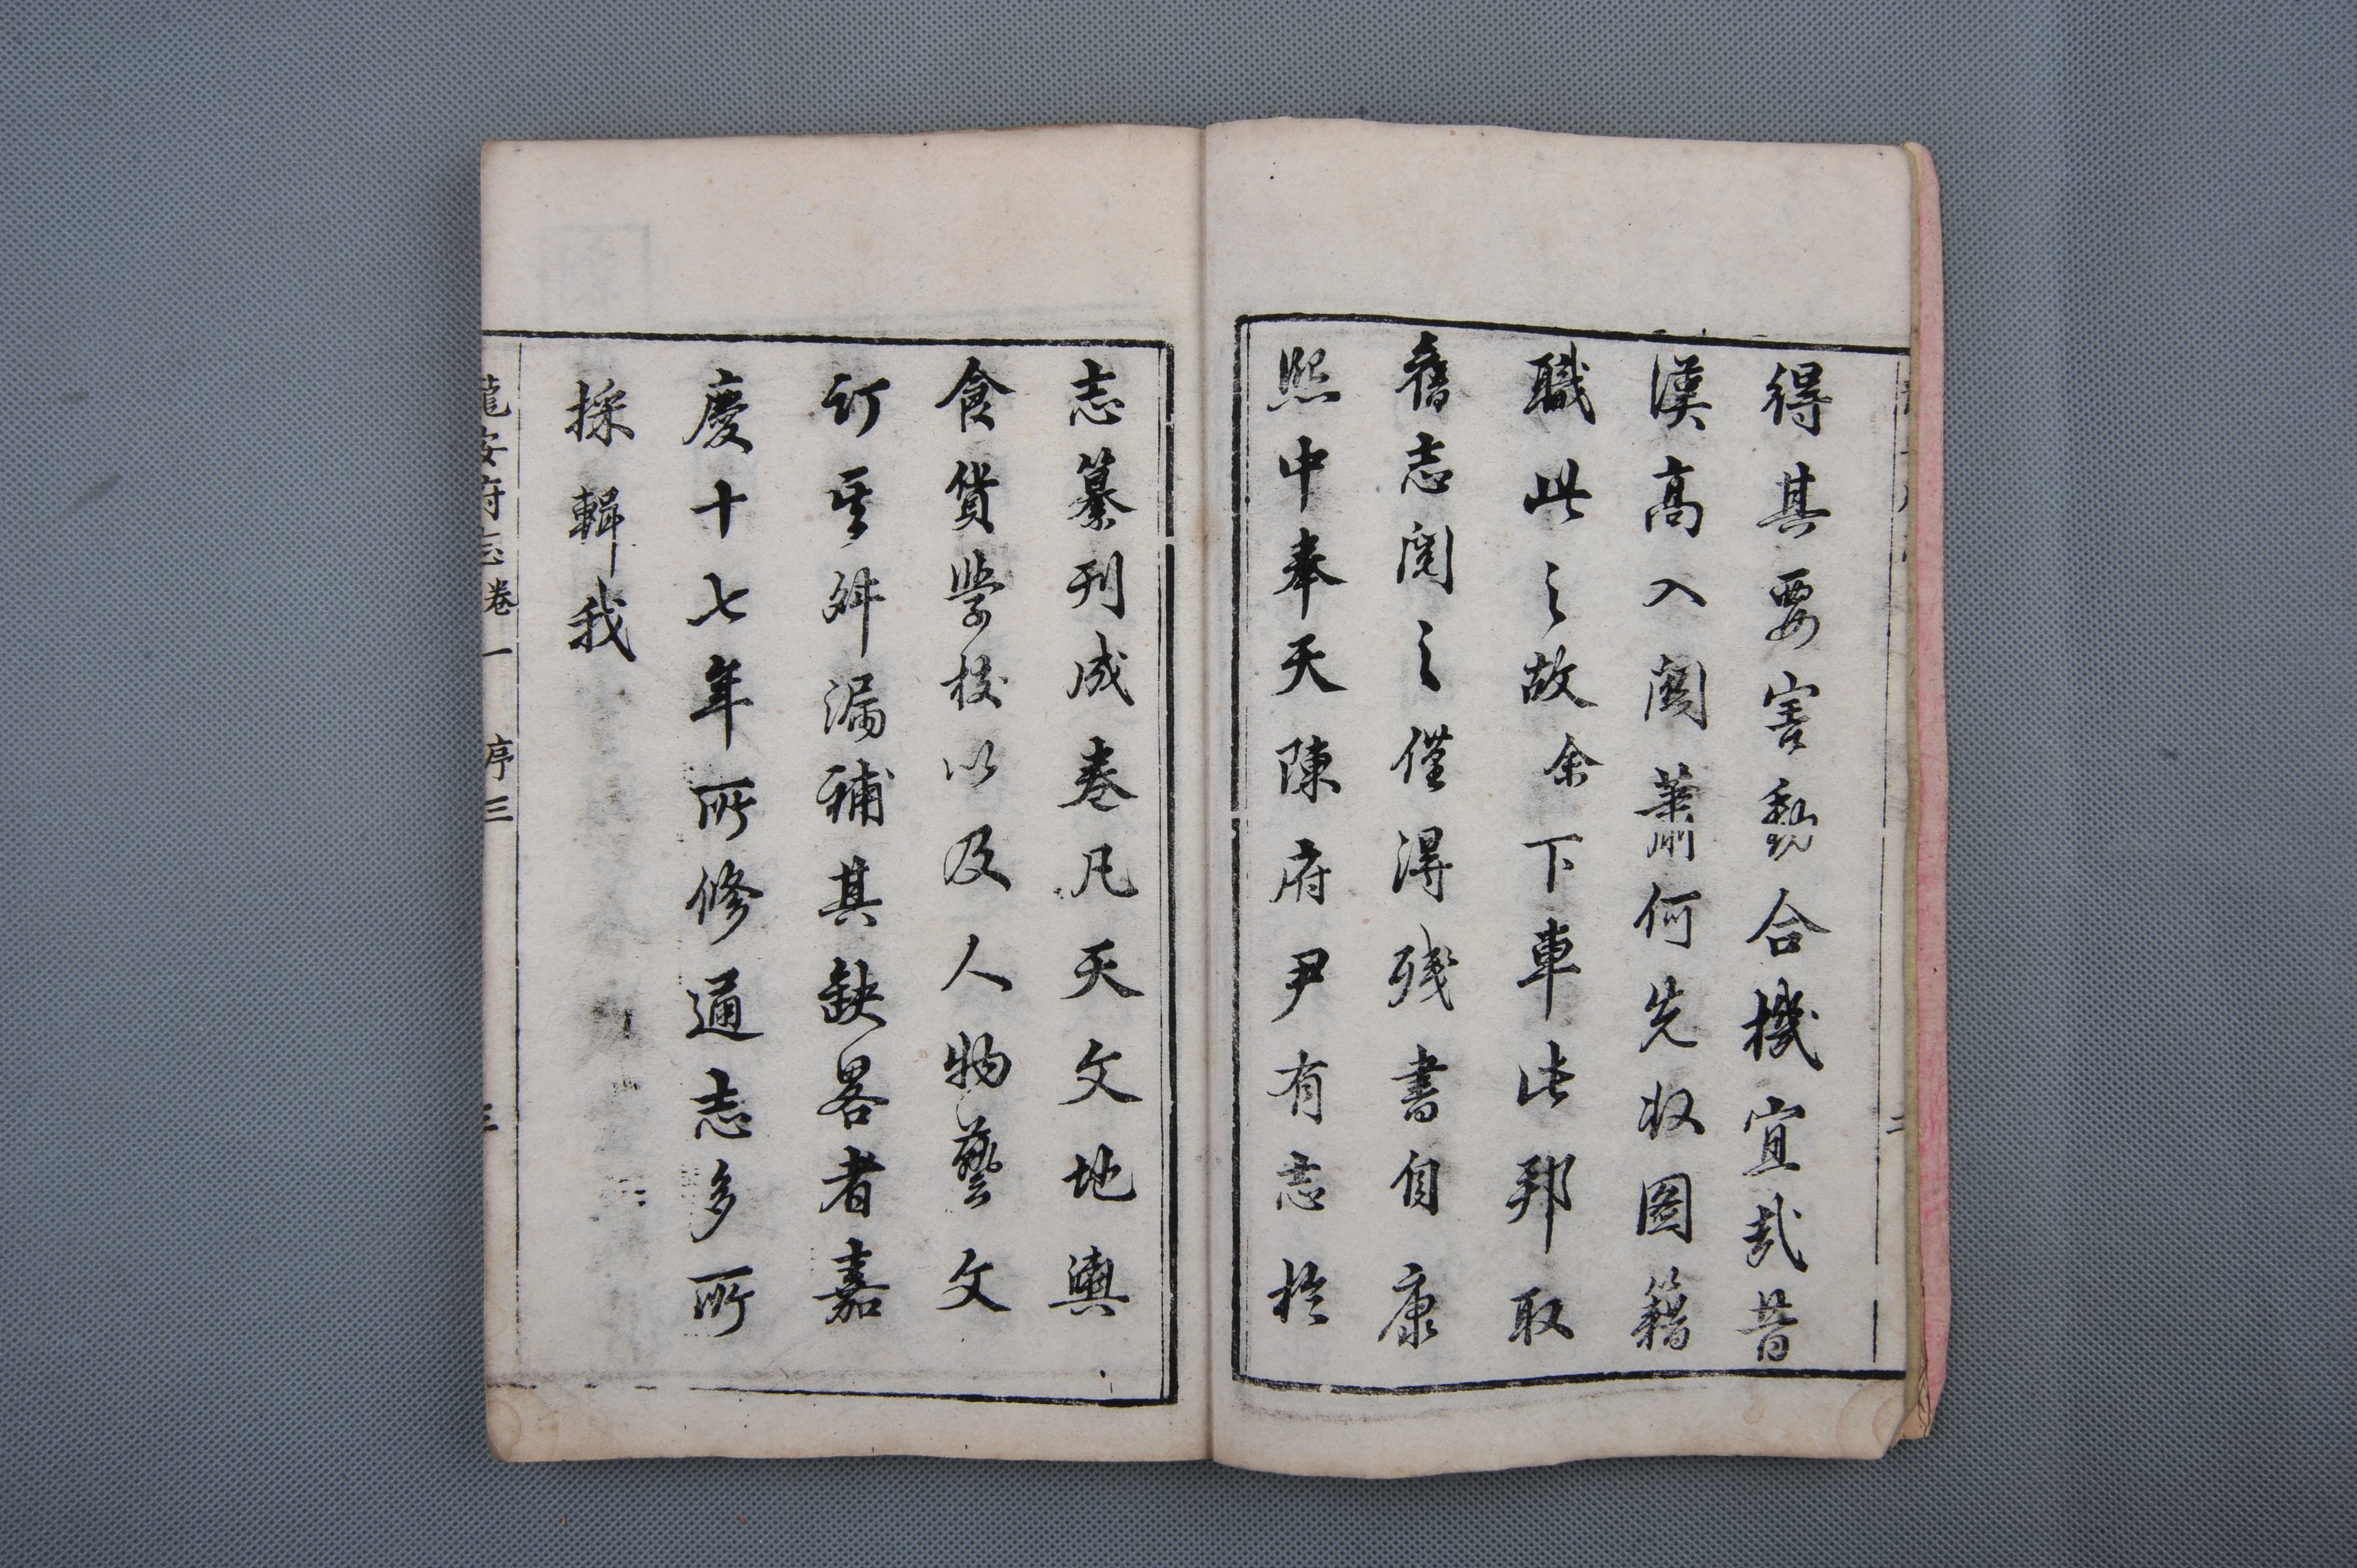 得其要害動合機宜哉昔
漢高入關蕭何先收圖籍
職此之故余下車此邦取
舊志閱之僅得殘書自康
熙中奉天陳府尹有志於
志纂刊成卷凡天文地輿
食貨學校以及人物藝文
訂其舛漏補其缺畧者嘉
慶十七年所修通志多所
採輯我
龍安府志卷一 序三 三